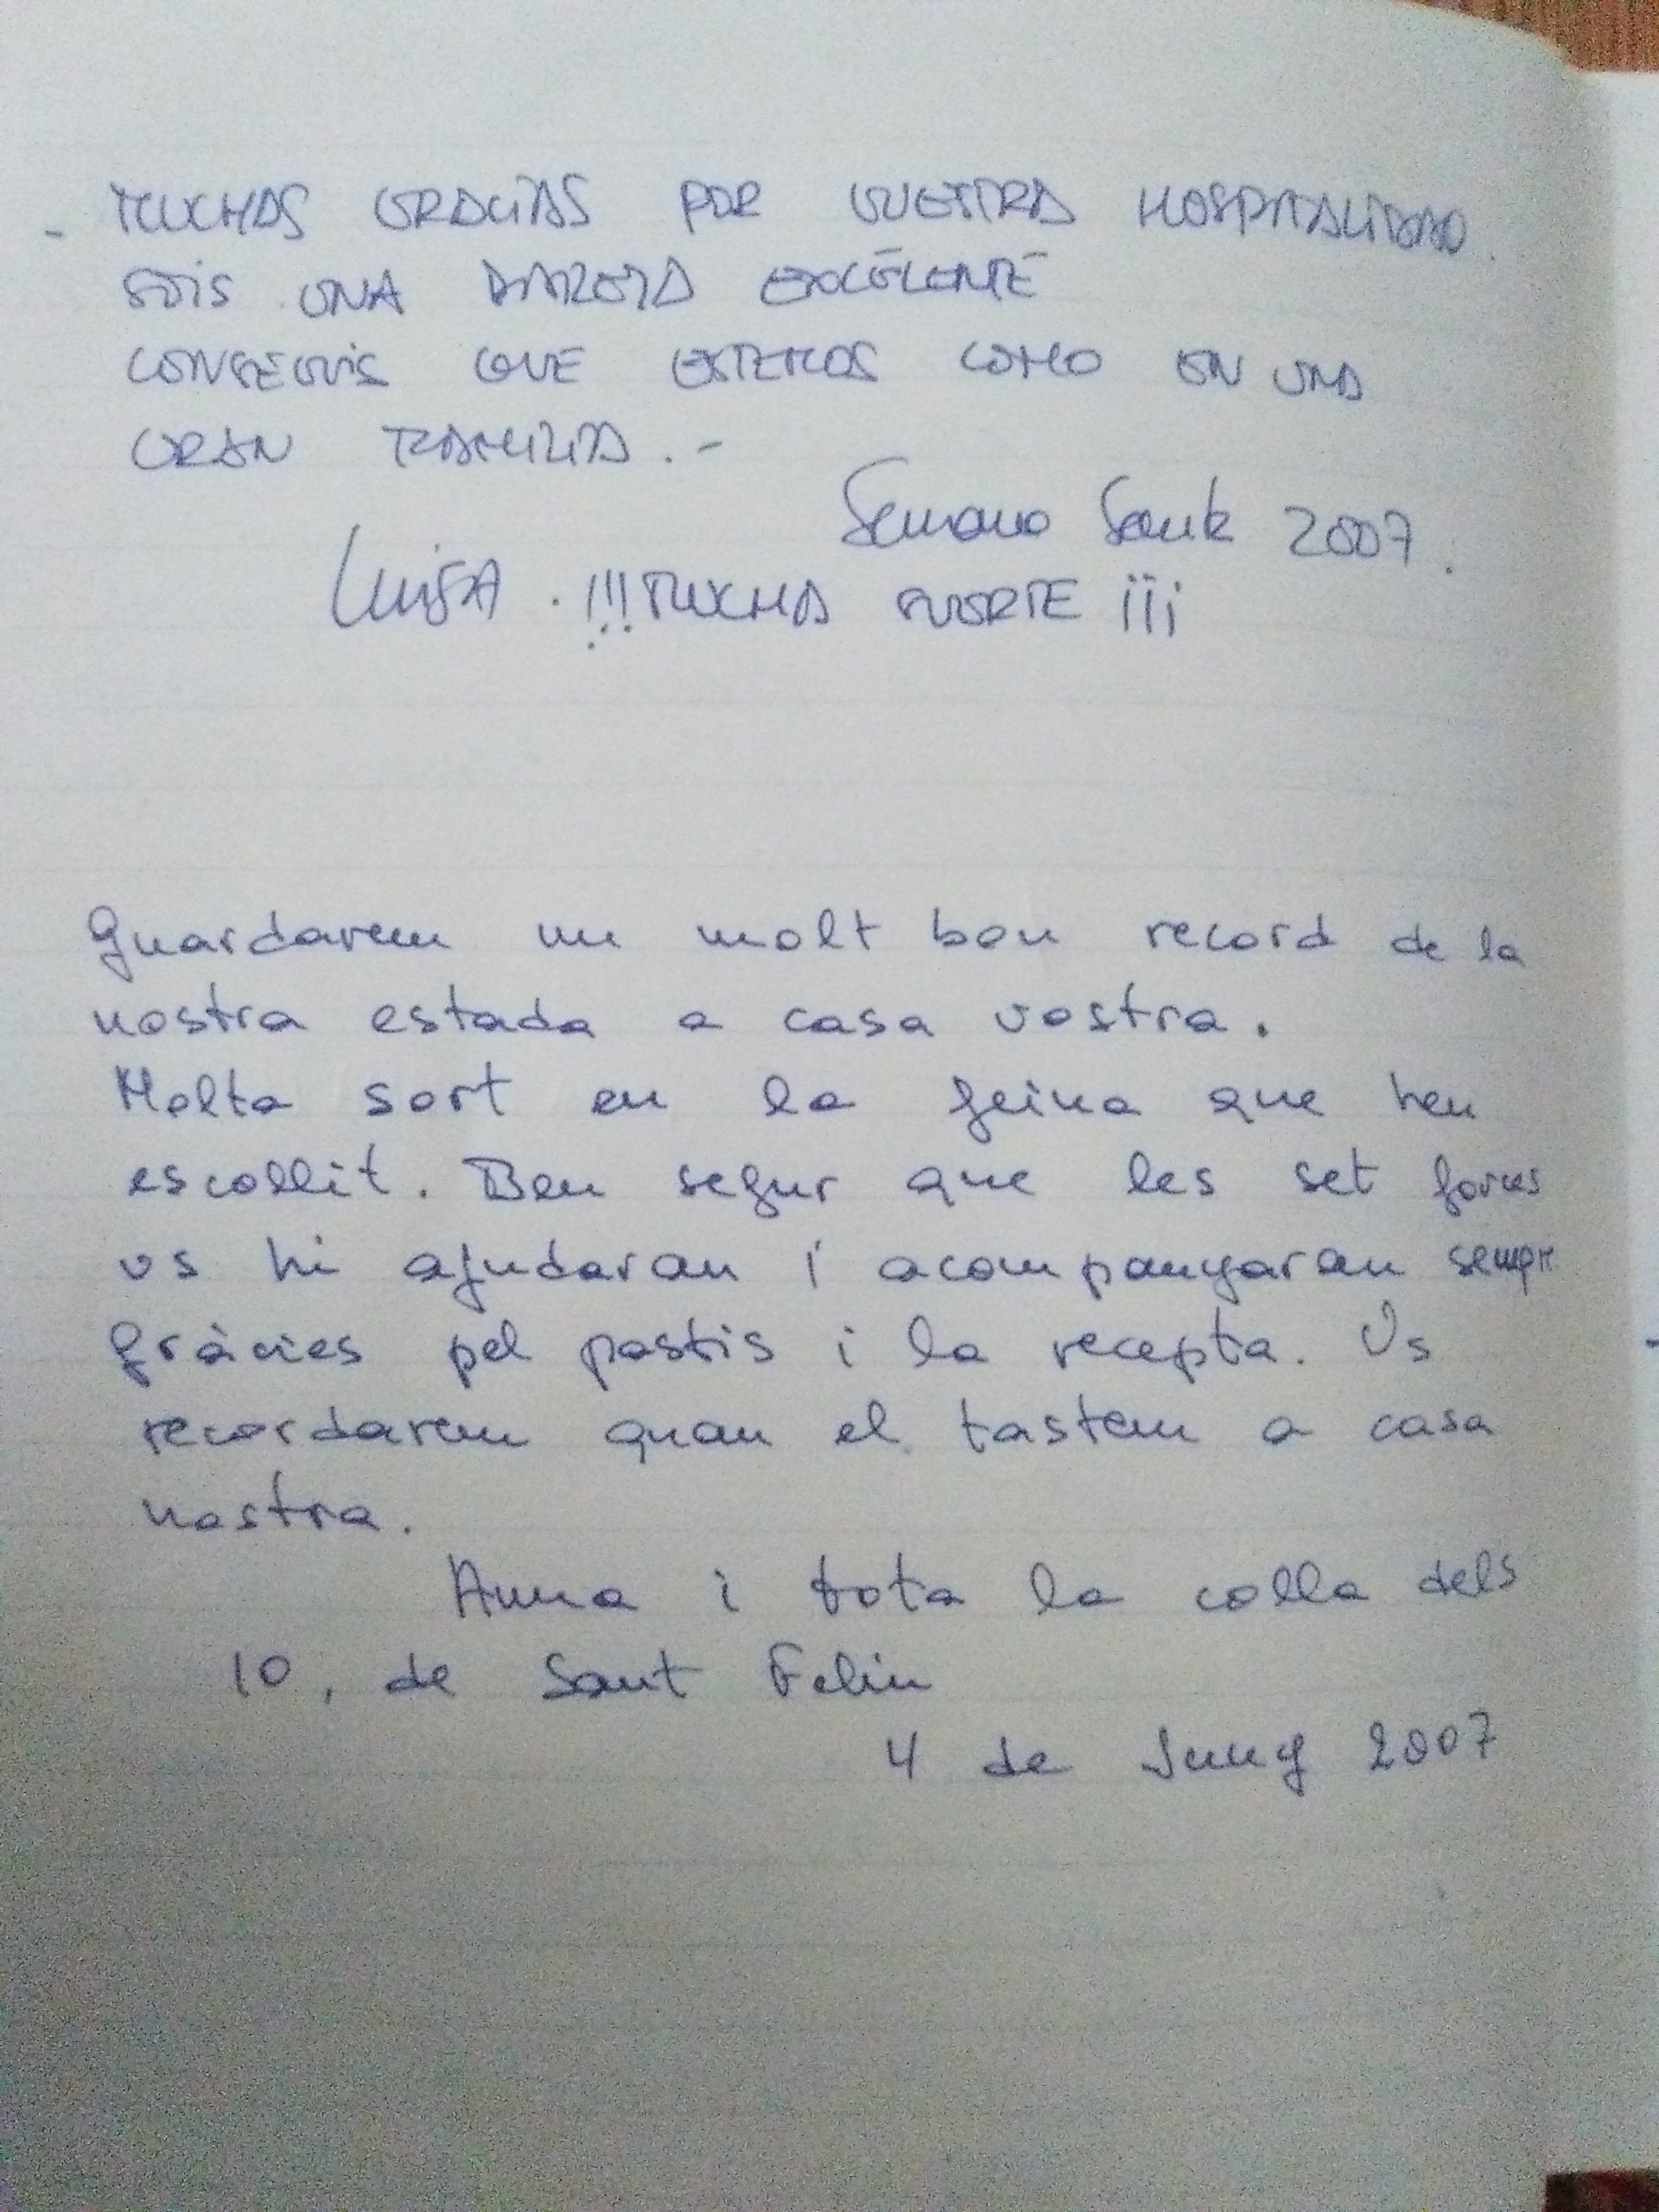 - MUCHAS GRACIAS POR VUESTRA HOSPITALIDAD.
SOIS UNA PAREJA EXCELENTE
CONSEGUIS QUE ESTEMOS COMO EN UNA
GRAN FAMILIA.-
Semana Santa 2007.
LUISA. !!!MUCHA SUERTE ¡¡¡
Guardarem un molt bon record de la
nostra estada a casa vostra.
Molta sort en la feina que heu
escollit. Ben segur que les set forces
us hi ajudaran i acompanyaran sempre
Gràcies pel pastis i la recepta. Us
recordarem quan el tastem a casa
nostra.
Anna i tota la colla dels
10, de Sant Feliu
4 de Juny 2007